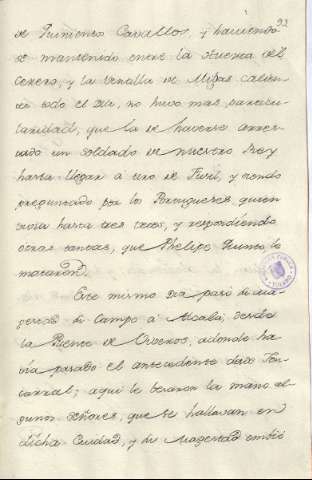 92
de Quinientos Cavallos, y haviendo
se mantenido entre la Huerta del
Cerero, y la Ventilla de Migas calien-
tes todo el dia, no huvo mas particu-
laridad, que la de haverse acer-
cado un soldado de nuestro Rey
hasta llegar a tiro de Fusil, y siendo
preguntado por los Portugueses, quien
vivia hasta tres veces, y respondiendo
otras tantas, que Phelipe Quinto lo
mataron.
Este mismo dia pasó su Ma-
gestad su Campo a Alcalá, desde
la Puente de Viveros, adonde ha-
vía pasado el antecedente desde Fon-
carral; aqui le besaron la mano al-
gunos Señores, que se hallavan en
dicha Ciudad, y su Magestad embió